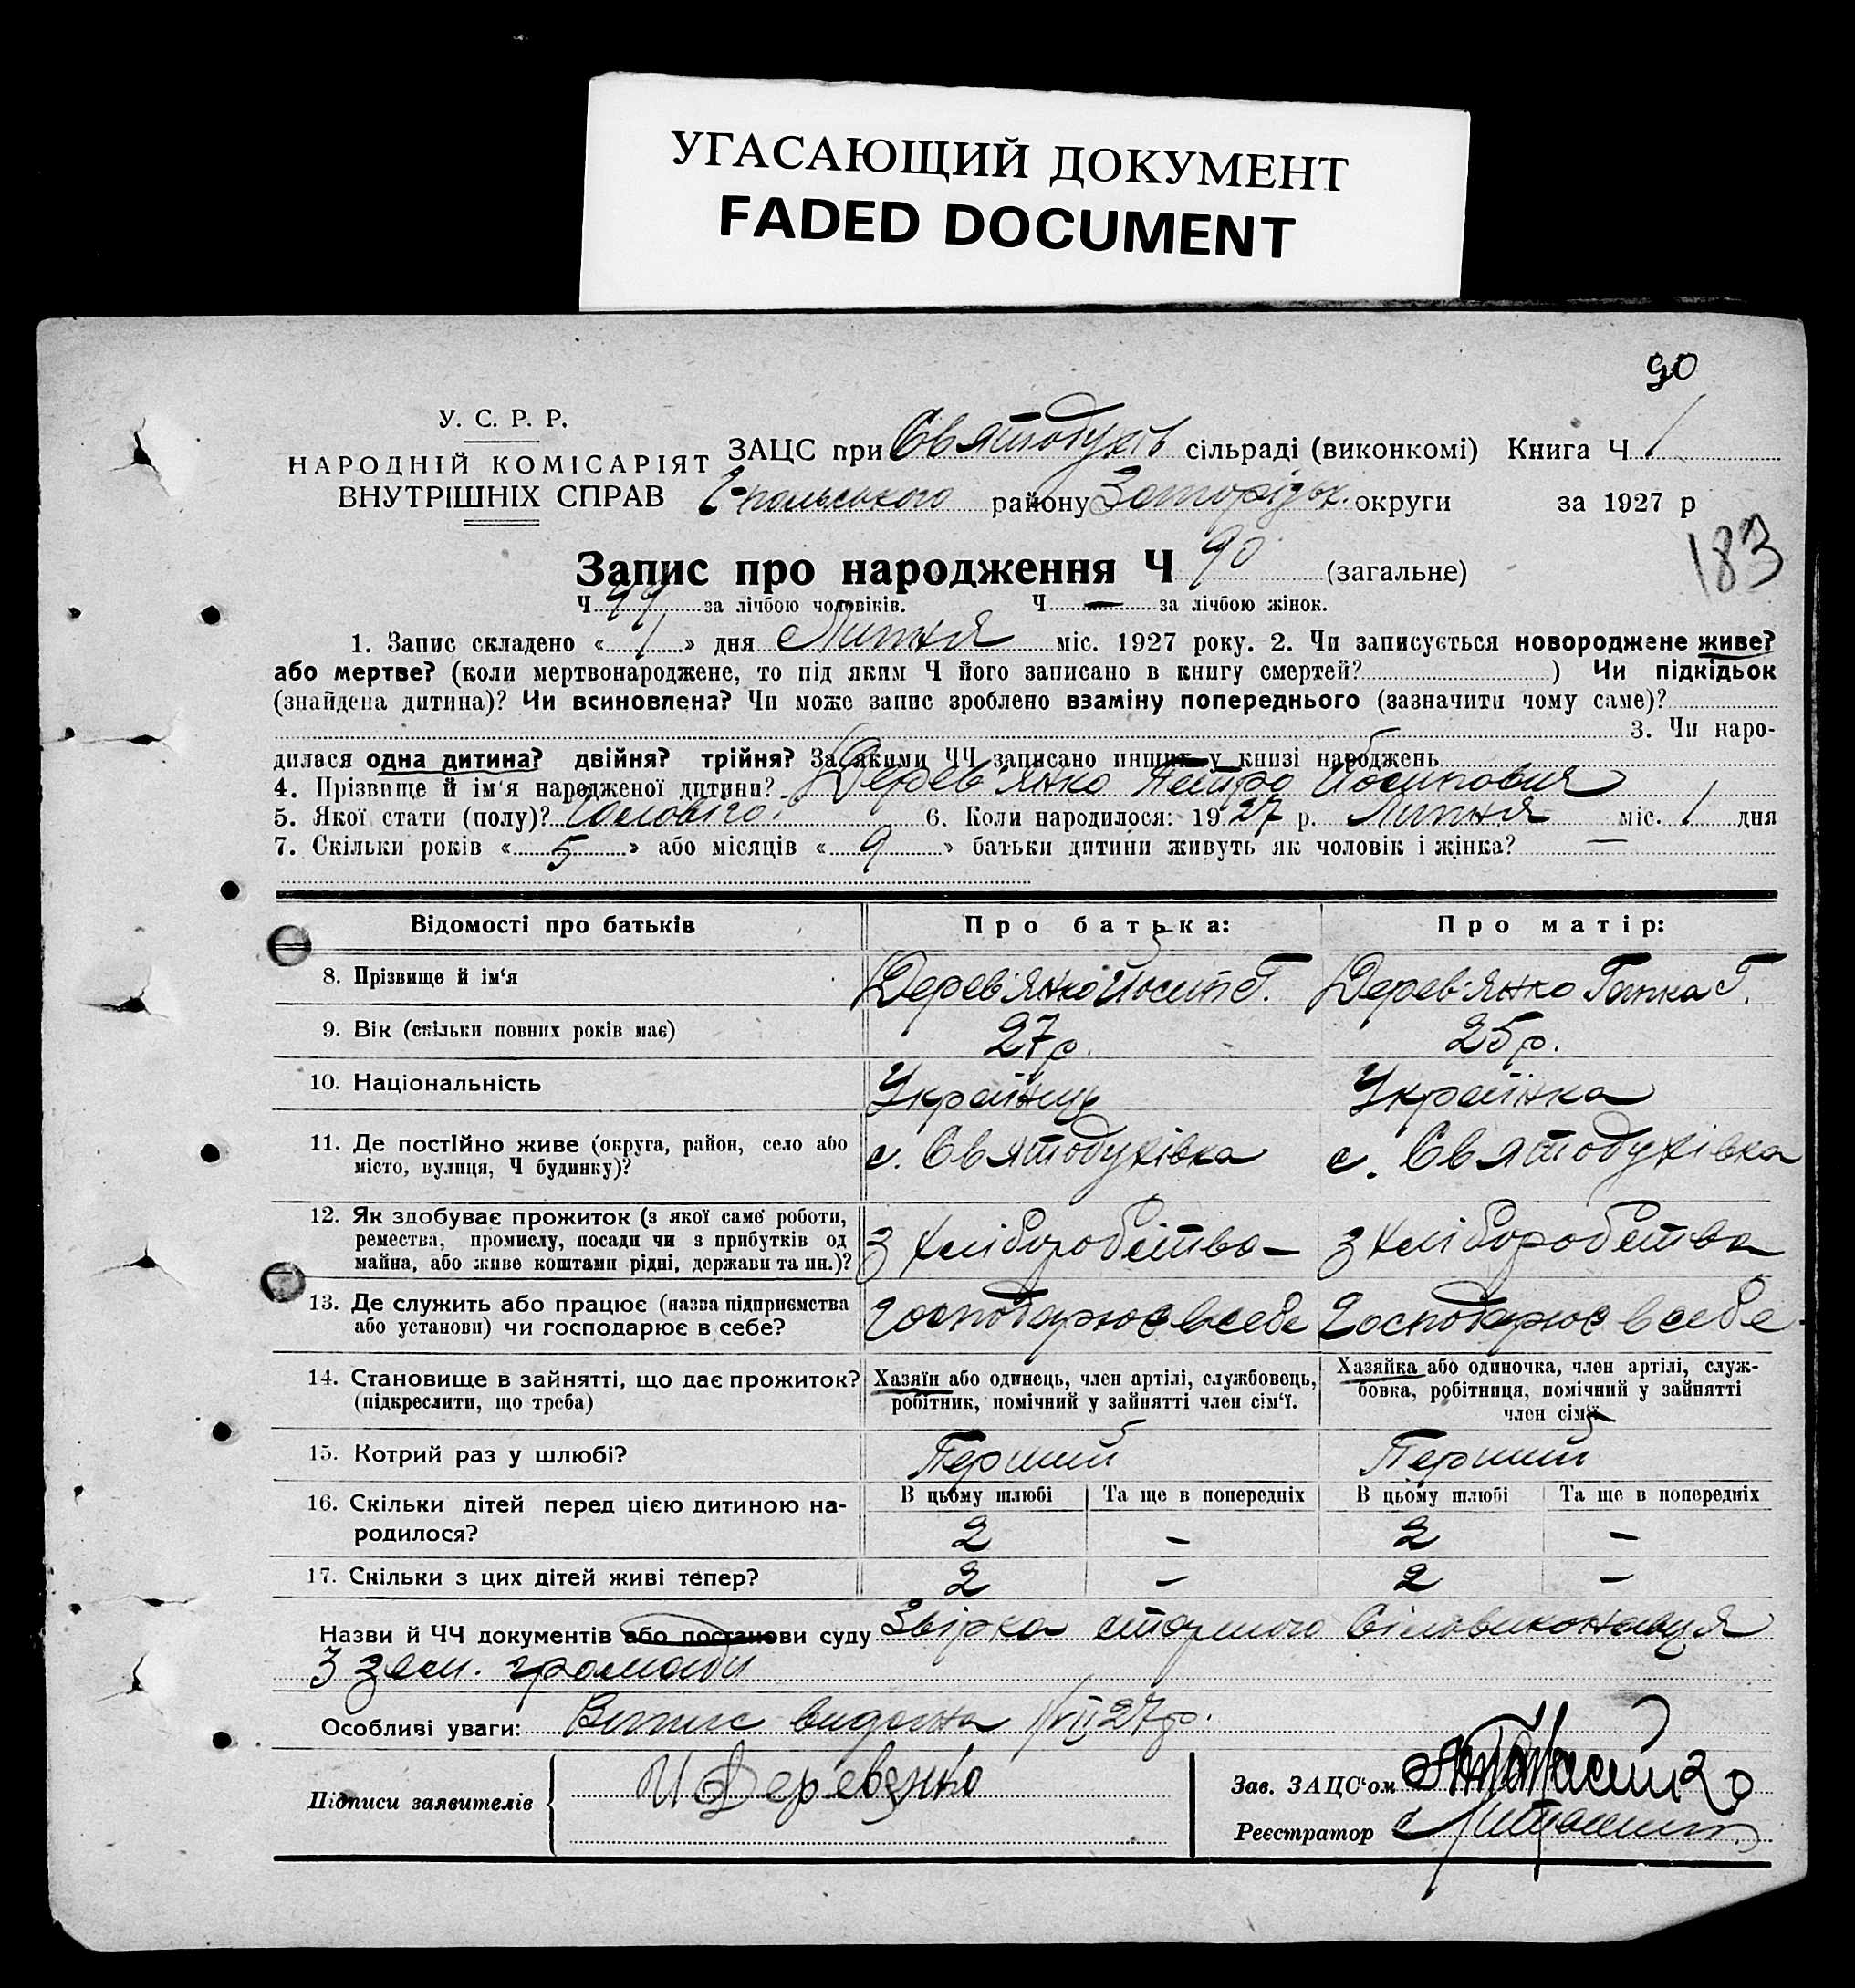 УГАСАЮЩИЙ ДОКУМЕНТ
FADED DOCUMENT
90
У. С. Р. Р.
НАРОДНІЙ КОМІСАРІЯТ
ВНУТРІШНІХ СПРАВ
ЗАЦС при Святодухів сільраді (виконкомі) Книга Ч 1
г-польського району Запоріжськ. округи за 1927 р
183
Запис про народження Ч 90 (загальне)
Ч 49 за лічбою чоловіків. Ч — за лічбою жінок.
1. Запис складено « 1 » дня Липня міс. 1927 року. 2. Чи записується новороджене живе?
або мертве? (коли мертвонароджене, то під яким Ч його записано в книгу смертей? ) Чи підкідьок
(знайдена дитина)? Чи всиновлена? Чи може запис зроблено взаміну попереднього (зазначити чому саме)?
3. Чи наро-
дилася одна дитина? двійня? трійня? За якими ЧЧ записано инших у книзі народжень
4. Прізвище й ім'я народженої дитини? Дерев'янко Петро Йосипович
5. Якої стати (полу)? Чоловічо. 6. Коли народилося: 1927 р. Липня міс. 1 дня
7. Скільки років « 5 » або місяців « 9 » батьки дитини живуть як чоловік і жінка? —
Відомості про батьків Про батька: Про матір:
8. Прізвище й ім'я Дерев'янко Йосип Г. Дерев'янко Ганка Г.
9. Вік (скільки повних років має) 27 р. 25 р.
10. Національність Українець Українка
11. Де постійно живе (округа, район, село або
місто, вулиця, Ч будинку)? с. Святодухівка с. Святодухівка
12. Як здобуває прожиток (з якої саме роботи,
ремества, промислу, посади чи з прибутків од
майна, або живе коштами рідні, держави та ин.)? З хліборобства З хліборобства
13. Де служить або працює (назва підприємства
або установи) чи господарює в себе? Господарює в себе Господарює в себе
14. Становище в зайнятті, що дає прожиток?
(підкреслити, що треба)
Хазяїн або одинець, член артілі, службовець,
робітник, помічний у зайнятті член сім'ї.
Хазяйка або одиночка, член артілі, служ-
бовка, робітниця, помічний у зайнятті
член сім'ї
15. Котрий раз у шлюбі? Перший Перший
16. Скільки дітей перед цією дитиною на-
родилося?
В цьому шлюбі Та ще в попередніх В цьому шлюбі Та ще в попередніх
2 — 2 —
17. Скільки з цих дітей живі тепер? 2 — 2 —
Назви й ЧЧ документів або постанови суду Звірка старшого Сільвиконавця
З зем. громади
Особливі уваги: Випис видана 1/VII 27 р.
Підписи заявителів И Деревянко
Зав. ЗАЦС'ом
Реєстратор